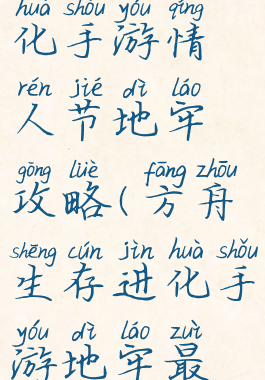 huà shǒu yóu qíng
化手游情
rén jié dì láo
人节地牢
gōng lüè fāng zhōu
攻略(方舟
shēng cún jìn huà shǒu
生存进化手
yóu dì láo zuì
游地牢最